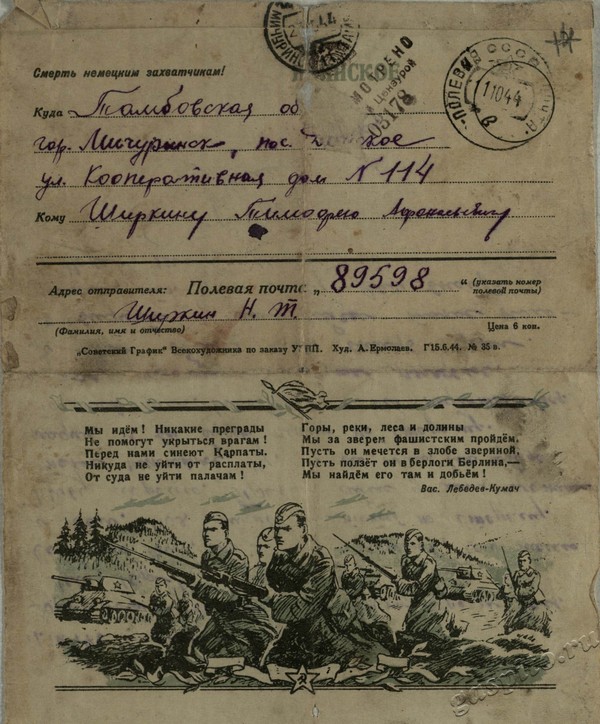 Смерть немецким захватчикам!
ПОЛЕВАЯ ПОЧТА
СССР
11 10 44
в
Военной Цензурой
05178
Куда Тамбовская об
гор. Мичуринск, пос. Донское
ул. Кооперативная дом N 114
Кому Ширкину Тимофею
Адрес отправителя: Полевая почта „89598“ (указать номер полевой почты)
Ширкин Н. Т.
(Фамилия, имя и отчество) Цена 6 коп.
„Советский График“ Всекохудожника по заказу Худ. А. Ермолаев. Г15.6.44. № 35 в.
Мы идём! Никакие преграды
Не помогут укрыться врагам!
Перед нами синеют Карпаты.
Никуда не уйти от расплаты,
От суда не уйти палачам!
Горы, реки, леса и долины
Мы за зверем фашистским пройдём.
Пусть он мечется в злобе звериной,
Пусть ползёт он в берлоги Берлина,—
Мы найдём его там и добьём!
Вас. Лебедев-Кумач